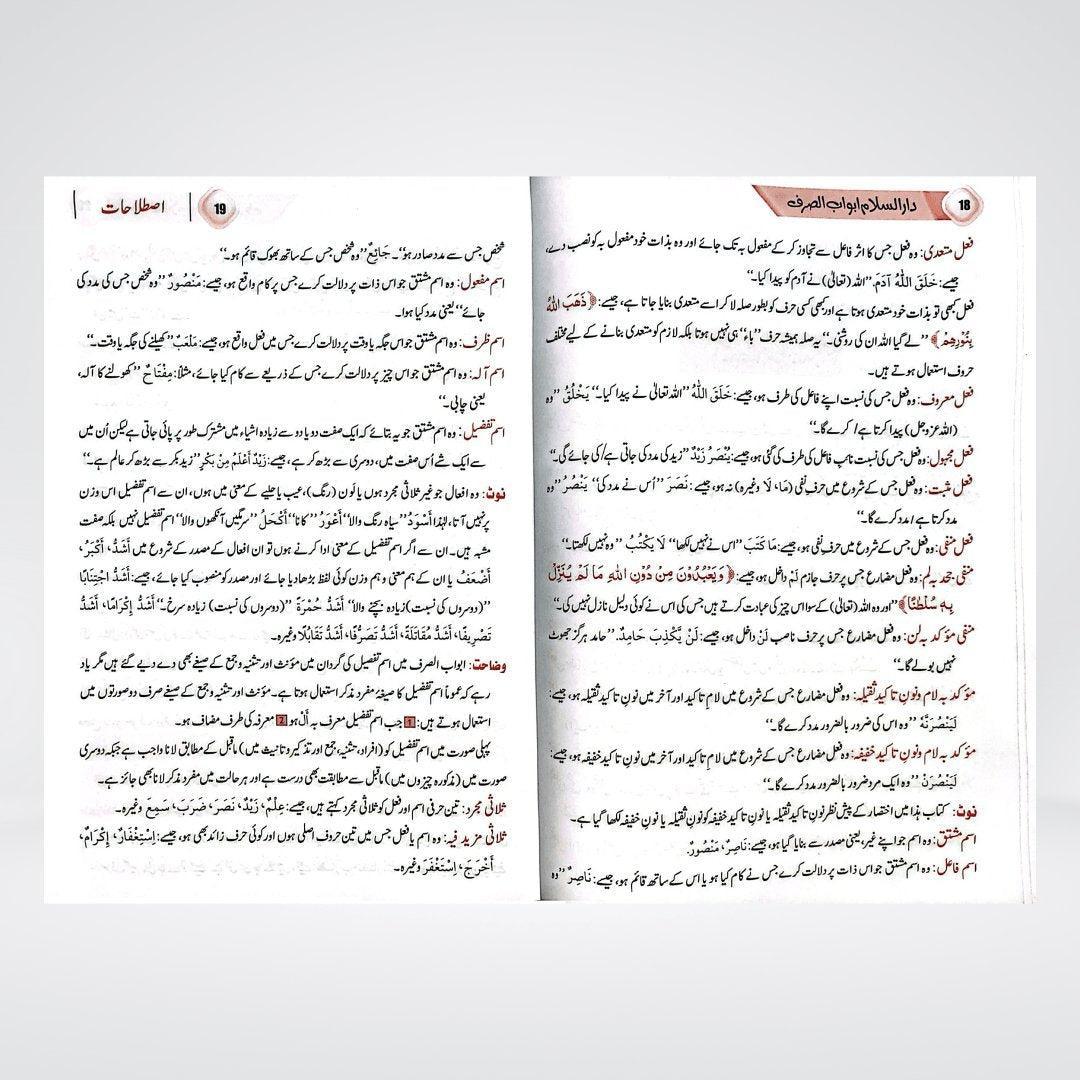 18
دارالسلام ابواب الصرف
فعل متعدی: وہ فعل جس کا اثر فاعل سے تجاوز کر کے مفعول بہ تک جائے اور وہ بذات خود مفعول بہ کو نصب دے،
جیسے: خَلَقَ اللّٰهُ آدَمَ. ’’اللہ (تعالیٰ) نے آدم کو پیدا کیا۔‘‘
فعل کبھی تو بذات خود متعدی ہوتا ہے اور کبھی کسی حرف کو بطور صلہ لا کر اسے متعدی بنایا جاتا ہے، جیسے: ﴿ذَهَبَ اللّٰهُ
بِنُوْرِهِمْ﴾ ’’لے گیا اللہ ان کی روشنی۔‘‘ یہ صلہ ہمیشہ حرف ’’باء‘‘ ہی نہیں ہوتا بلکہ لازم کو متعدی بنانے کے لیے مختلف
حروف استعمال ہوتے ہیں۔
فعل معروف: وہ فعل جس کی نسبت اپنے فاعل کی طرف ہو، جیسے: خَلَقَ اللّٰهُ ’’اللہ تعالیٰ نے پیدا کیا۔‘‘ يَخْلُقُ ’’وہ
(اللہ عزوجل) پیدا کرتا ہے / کرے گا۔‘‘
فعل مجہول: وہ فعل جس کی نسبت نائب فاعل کی طرف کی گئی ہو، جیسے: يُنْصَرُ زَيْدٌ ’’زید کی مدد کی جاتی ہے / کی جائے گی۔‘‘
فعل مثبت: وہ فعل جس کے شروع میں حرف نفی (مَا، لَا وغیرہ) نہ ہو، جیسے: نَصَرَ ’’اُس نے مدد کی‘‘ يَنْصُرُ ’’وہ
مدد کرتا ہے / مدد کرے گا۔‘‘
فعل منفی: وہ فعل جس کے شروع میں حرف نفی ہو، جیسے: مَا كَتَبَ ’’اس نے نہیں لکھا‘‘ لَا يَكْتُبُ ’’وہ نہیں لکھتا۔‘‘
منفی جحد بہ لم: وہ فعل مضارع جس پر حرف جازم لَمْ داخل ہو، جیسے: ﴿وَيَعْبُدُوْنَ مِنْ دُوْنِ اللّٰهِ مَا لَمْ يُنَزِّلْ
بِهٖ سُلْطٰنًا﴾ ’’اور وہ اللہ (تعالیٰ) کے سوا اس چیز کی عبادت کرتے ہیں جس کی اس نے کوئی دلیل نازل نہیں کی۔‘‘
منفی مؤکد بہ لن: وہ فعل مضارع جس پر حرف ناصب لَنْ داخل ہو، جیسے: لَنْ يَّكْذِبَ حَامِدٌ. ’’حامد ہرگز جھوٹ
نہیں بولے گا۔‘‘
مؤکد بہ لام ونون تاکید ثقیلہ: وہ فعل مضارع جس کے شروع میں لام تاکید اور آخر میں نون تاکید ثقیلہ ہو، جیسے:
لَيَنْصُرَنَّهُ ’’وہ اس کی ضرور بالضرور مدد کرے گا۔‘‘
مؤکد بہ لام ونون تاکید خفیفہ: وہ فعل مضارع جس کے شروع میں لام تاکید اور آخر میں نون تاکید خفیفہ ہو، جیسے:
لَيَنْصُرَنْ ’’وہ ایک مرد ضرور بالضرور مدد کرے گا۔‘‘
نوٹ: کتاب ہذا میں اختصار کے پیش نظر نون تاکید ثقیلہ یا نون تاکید خفیفہ کو نون ثقیلہ یا نون خفیفہ لکھا گیا ہے۔
اسم مشتق: وہ اسم جو اپنے غیر، یعنی مصدر سے بنایا گیا ہو، جیسے: نَاصِرٌ، مَنْصُورٌ.
اسم فاعل: وہ اسم مشتق جو اس ذات پر دلالت کرے جس نے کام کیا ہو یا اس کے ساتھ قائم ہو، جیسے: نَاصِرٌ ’’وہ
19
اصطلاحات
شخص جس سے مدد صادر ہو‘‘۔ جَائِعٌ ’’وہ شخص جس کے ساتھ بھوک قائم ہو۔‘‘
اسم مفعول: وہ اسم مشتق جو اس ذات پر دلالت کرے جس پر کام واقع ہو، جیسے: مَنْصُورٌ ’’وہ شخص جس کی مدد کی
جائے‘‘ یعنی مدد کیا ہوا۔
اسم ظرف: وہ اسم مشتق جو اس جگہ یا وقت پر دلالت کرے جس میں فعل واقع ہو، جیسے: مَلْعَبٌ ’’کھیلنے کی جگہ یا وقت۔‘‘
اسم آلہ: وہ اسم مشتق جو اس چیز پر دلالت کرے جس کے ذریعے سے کام کیا جائے، مثلاً: مِفْتَاحٌ ’’کھولنے کا آلہ،
یعنی چابی۔‘‘
اسم تفضیل: وہ اسم مشتق جو یہ بتائے کہ ایک صفت دو یا دو سے زیادہ اشیاء میں مشترک طور پر پائی جاتی ہے لیکن اُن میں
سے ایک شے اُس صفت میں، دوسری سے بڑھ کر ہے، جیسے: زَيْدٌ أَعْلَمُ مِنْ بَكْرٍ ’’زید بکر سے بڑھ کر عالم ہے۔‘‘
نوٹ: وہ افعال جو غیر ثلاثی مجرد ہوں یا لون (رنگ)، عیب یا حلیے کے معنی میں ہوں، ان سے اسم تفضیل اس وزن
پر نہیں آتا، لہٰذا أَسْوَدُ ’’سیاہ رنگ والا‘‘ أَعْوَرُ ’’کانا‘‘ أَكْحَلُ ’’سرمگیں آنکھوں والا‘‘ اسم تفضیل نہیں بلکہ صفت
مشبہ ہیں۔ ان سے اگر اسم تفضیل کے معنی ادا کرنے ہوں تو ان افعال کے مصدر کے شروع میں أَشَدُّ، أَكْبَرُ،
أَضْعَفُ یا ان کے ہم معنی و ہم وزن کوئی لفظ بڑھا دیا جائے اور مصدر کو منصوب کیا جائے، جیسے: أَشَدُّ اجْتِنَابًا
’’(دوسروں کی نسبت) زیادہ بچنے والا‘‘ أَشَدُّ حُمْرَةً ’’(دوسروں کی نسبت) زیادہ سرخ۔‘‘ أَشَدُّ إِكْرَامًا، أَشَدُّ
تَصْرِيفًا، أَشَدُّ مُقَاتَلَةً، أَشَدُّ تَصَرُّفًا، أَشَدُّ تَقَابُلًا وغیرہ۔
وضاحت: ابواب الصرف میں اسم تفضیل کی گردان میں مؤنث اور تثنیہ و جمع کے صیغے بھی دے دیے گئے ہیں مگر یاد
رہے کہ عموماً اسم تفضیل کا صیغہ مفرد مذکر استعمال ہوتا ہے۔ مؤنث اور تثنیہ و جمع کے صیغے صرف دو صورتوں میں
استعمال ہوتے ہیں: 1 جب اسم تفضیل معرف بہ أَلْ ہو 2 معرفہ کی طرف مضاف ہو۔
پہلی صورت میں اسم تفضیل کو (افراد، تثنیہ، جمع اور تذکیر و تانیث میں) ماقبل کے مطابق لانا واجب ہے جبکہ دوسری
صورت میں (مذکورہ چیزوں میں) ماقبل سے مطابقت بھی درست ہے اور ہر حالت میں مفرد مذکر لانا بھی جائز ہے۔
ثلاثی مجرد: تین حرفی اسم اور فعل کو ثلاثی مجرد کہتے ہیں، جیسے: عِلْمٌ، زَيْدٌ، نَصَرَ، ضَرَبَ، سَمِعَ وغیرہ۔
ثلاثی مزید فیہ: وہ اسم یا فعل جس میں تین حروف اصلی ہوں اور کوئی حرف زائد بھی ہو، جیسے: اِسْتِغْفَارٌ، إِكْرَامٌ،
أَخْرَجَ، اِسْتَغْفَرَ وغیرہ۔